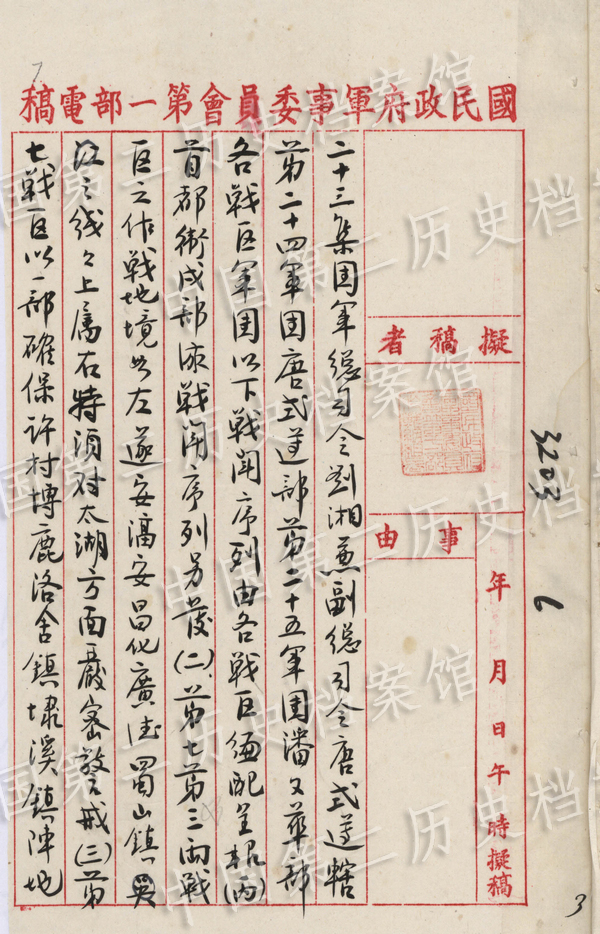 國民政府軍事委員會第一部電稿
擬稿者
事由
年月日午時擬稿
3203
6
二十三集團軍總司令劉湘兼副總司令唐式遵轄
第二十四軍團唐式遵部第二十五軍團潘文華部
各戰區軍團以下戰鬪序列由各戰區編配呈報(丙)
首都衛戍部隊戰鬪序列另發(二)第七第三兩戰
區之作戰地境如左遂安淳安昌化廣德蜀山鎮吳
江之綫々上屬右特須對太湖方面嚴密警戒(三)第
七戰區以一部確保許村博鹿洛舍鎮埭溪鎮陣地
3
中国第二历史档案馆